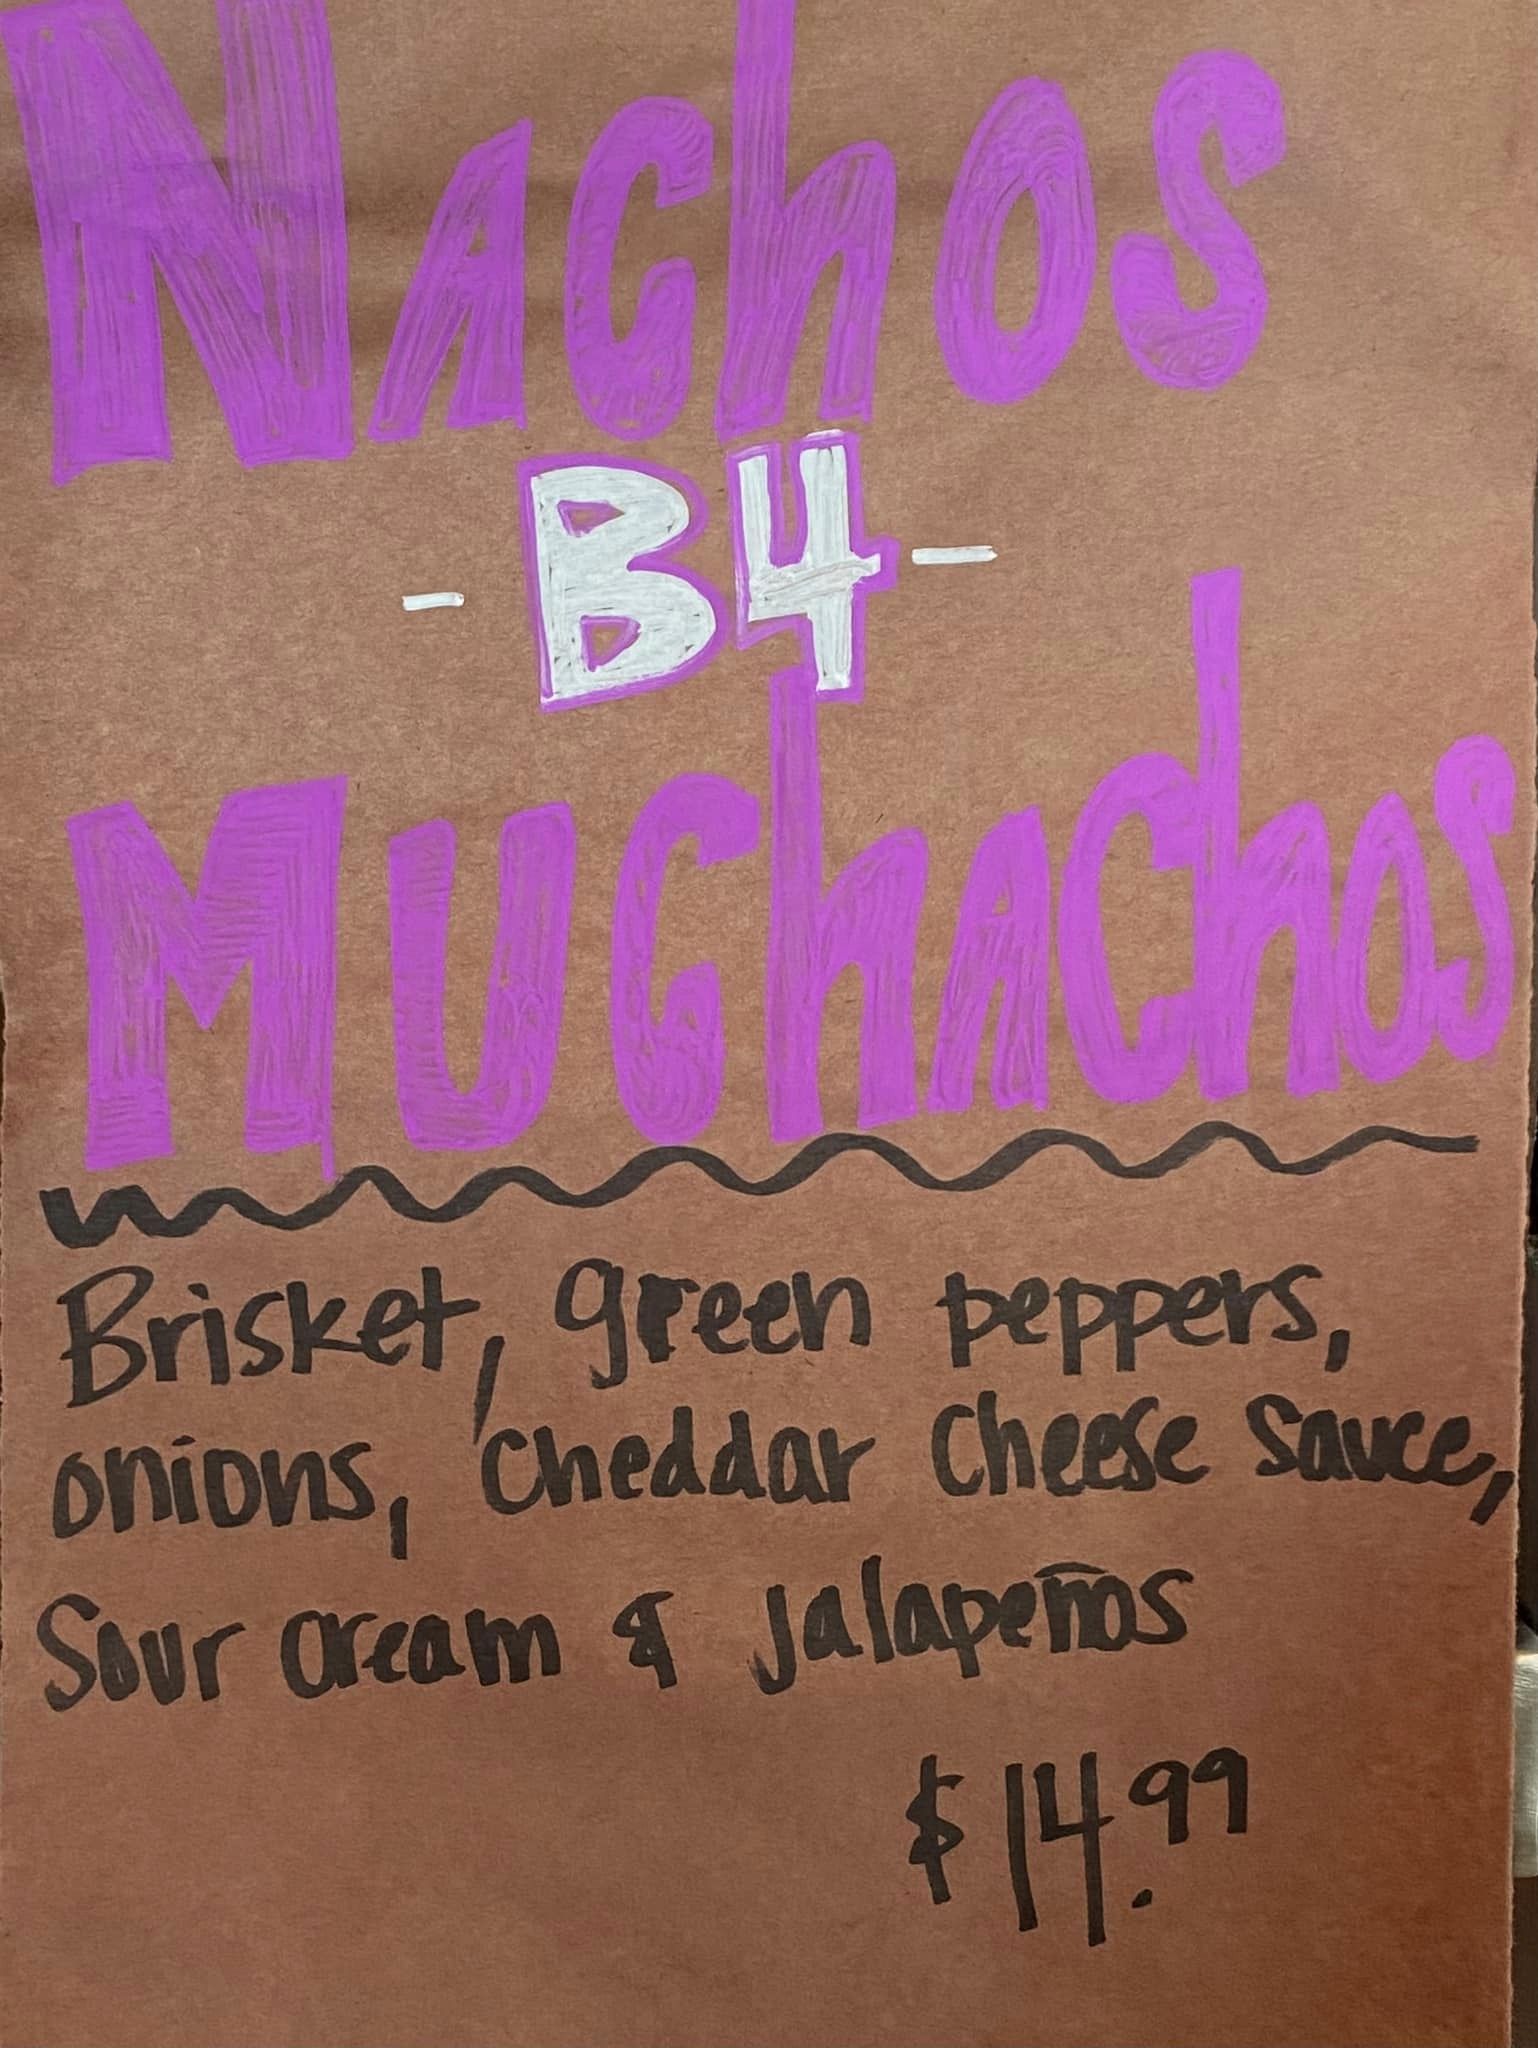 NAchos
- B4 -
MUChAChos
Brisket, green peppers,
onions, Cheddar Cheese sauce,
Sour cream & jalapeños
$14.99